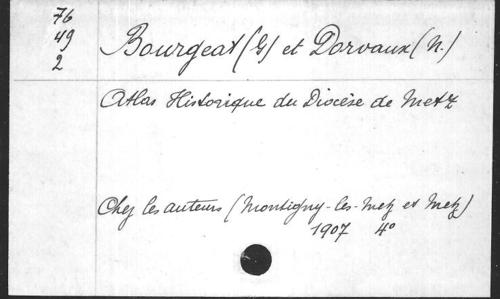 76
49
2
Bourgeat (G) et Dorvaux (N.)
Atlas Historique du Diocèse de Metz
Chez les auteurs (Montigny-les-Metz et Metz)
1907 4°